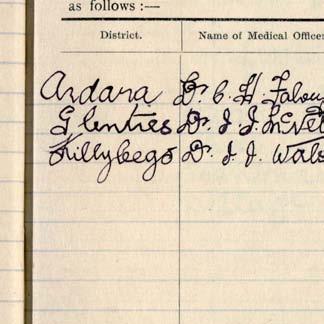 as follows :—
District. Name of Medical Officer
Ardara Dr. C. H. Falou
Glenties Dr. J. J. McNel
Killybegs Dr. J. J. Wals